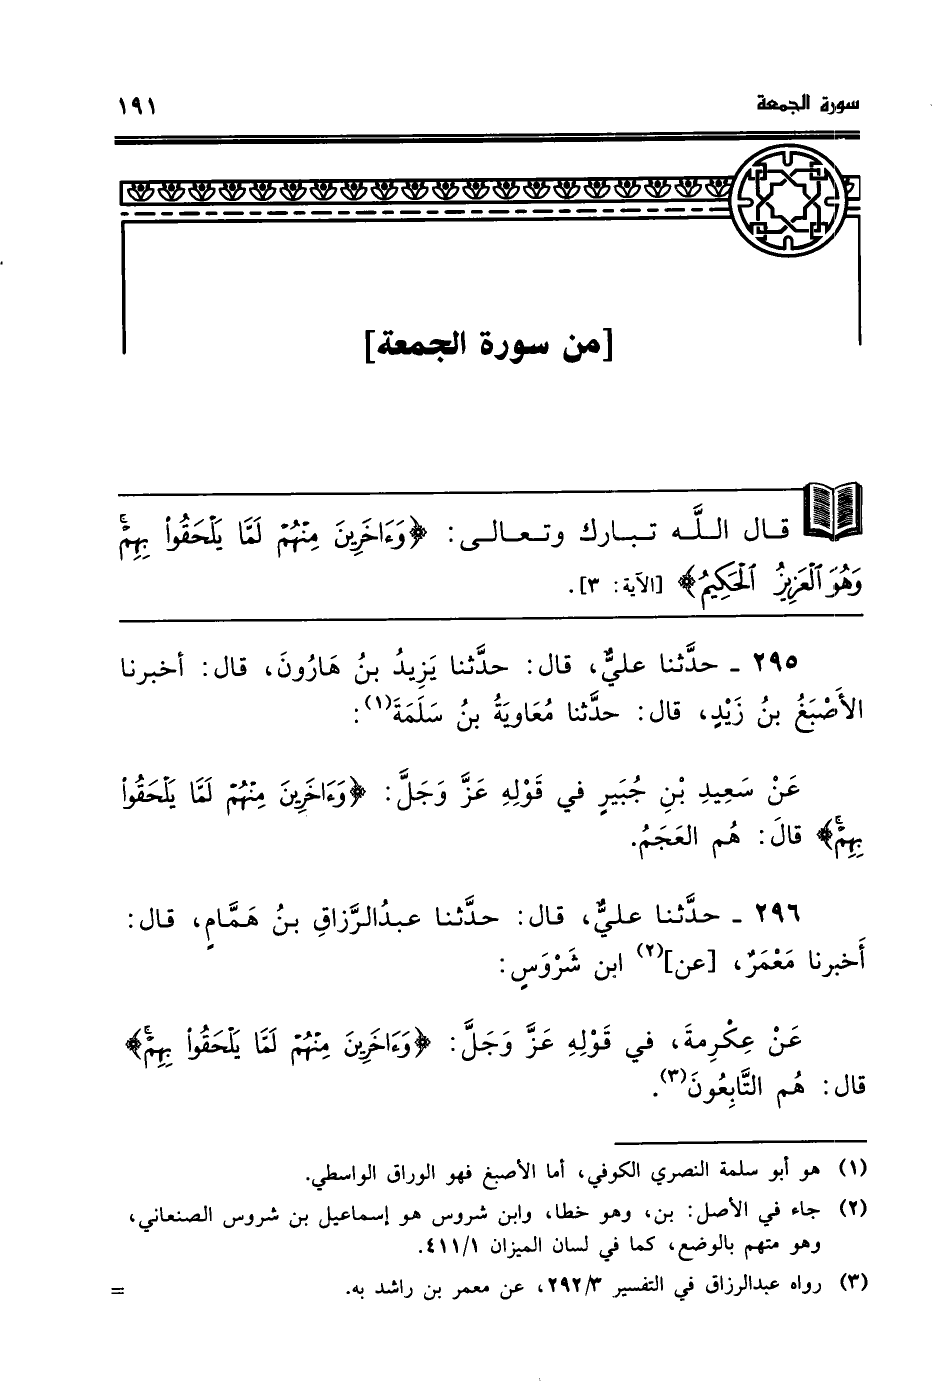 سورة الجمعة
١٩١
[من سورة الجمعة]
قال اللَّه تبارك وتعالى: ﴿وَءَاخَرِينَ مِنْهُمْ لَمَّا يَلْحَقُوا۟ بِهِمْۚ
وَهُوَ ٱلْعَزِيزُ ٱلْحَكِيمُ﴾ [الآية: ٣].
٢٩٥ ـ حدَّثنا عليٌّ، قال: حدَّثنا يَزِيدُ بنُ هَارُونَ، قال: أخبرنا
الأَصْبَغُ بنُ زَيْدٍ، قال: حدَّثنا مُعَاوِيَةُ بنُ سَلَمَةَ(١):
عَنْ سَعِيدِ بْنِ جُبَيرٍ في قَوْلِهِ عَزَّ وَجَلَّ: ﴿وَءَاخَرِينَ مِنْهُمْ لَمَّا يَلْحَقُوا۟
بِهِمْۚ﴾ قالَ: هُم العَجَمُ.
٢٩٦ ـ حدَّثنا عليٌّ، قال: حدَّثنا عبدُالرَّزاقِ بنُ هَمَّامٍ، قال:
أَخبرنا مَعْمَرٌ، [عن](٢) ابن شَرْوَسٍ:
عَنْ عِكْرِمةَ، في قَوْلِهِ عَزَّ وَجَلَّ: ﴿وَءَاخَرِينَ مِنْهُمْ لَمَّا يَلْحَقُوا۟ بِهِمْۚ﴾
قال: هُم التَّابِعُونَ(٣).
(١) هو أبو سلمة النصري الكوفي، أما الأصبغ فهو الوراق الواسطي.
(٢) جاء في الأصل: بن، وهو خطا، وابن شروس هو إسماعيل بن شروس الصنعاني،
وهو متهم بالوضع، كما في لسان الميزان ٤١١/١.
(٣) رواه عبدالرزاق في التفسير ٢٩٢/٣، عن معمر بن راشد به.
=